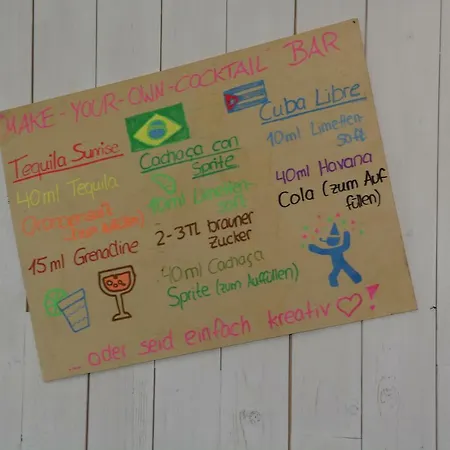 MAKE-YOUR-OWN-COCKTAIL BAR
Tequila Sunrise
40ml Tequila
Orangensaft
(zum Auffüllen)
15ml Grenadine
Cachaça con
Sprite
10ml Limetten-
saft
2-3TL brauner
Zucker
40ml Cachaça
Sprite (zum Auffüllen)
Cuba Libre
10ml Limetten-
saft
40ml Havana
Cola (zum Auf
füllen)
... oder seid einfach kreativ ♡!